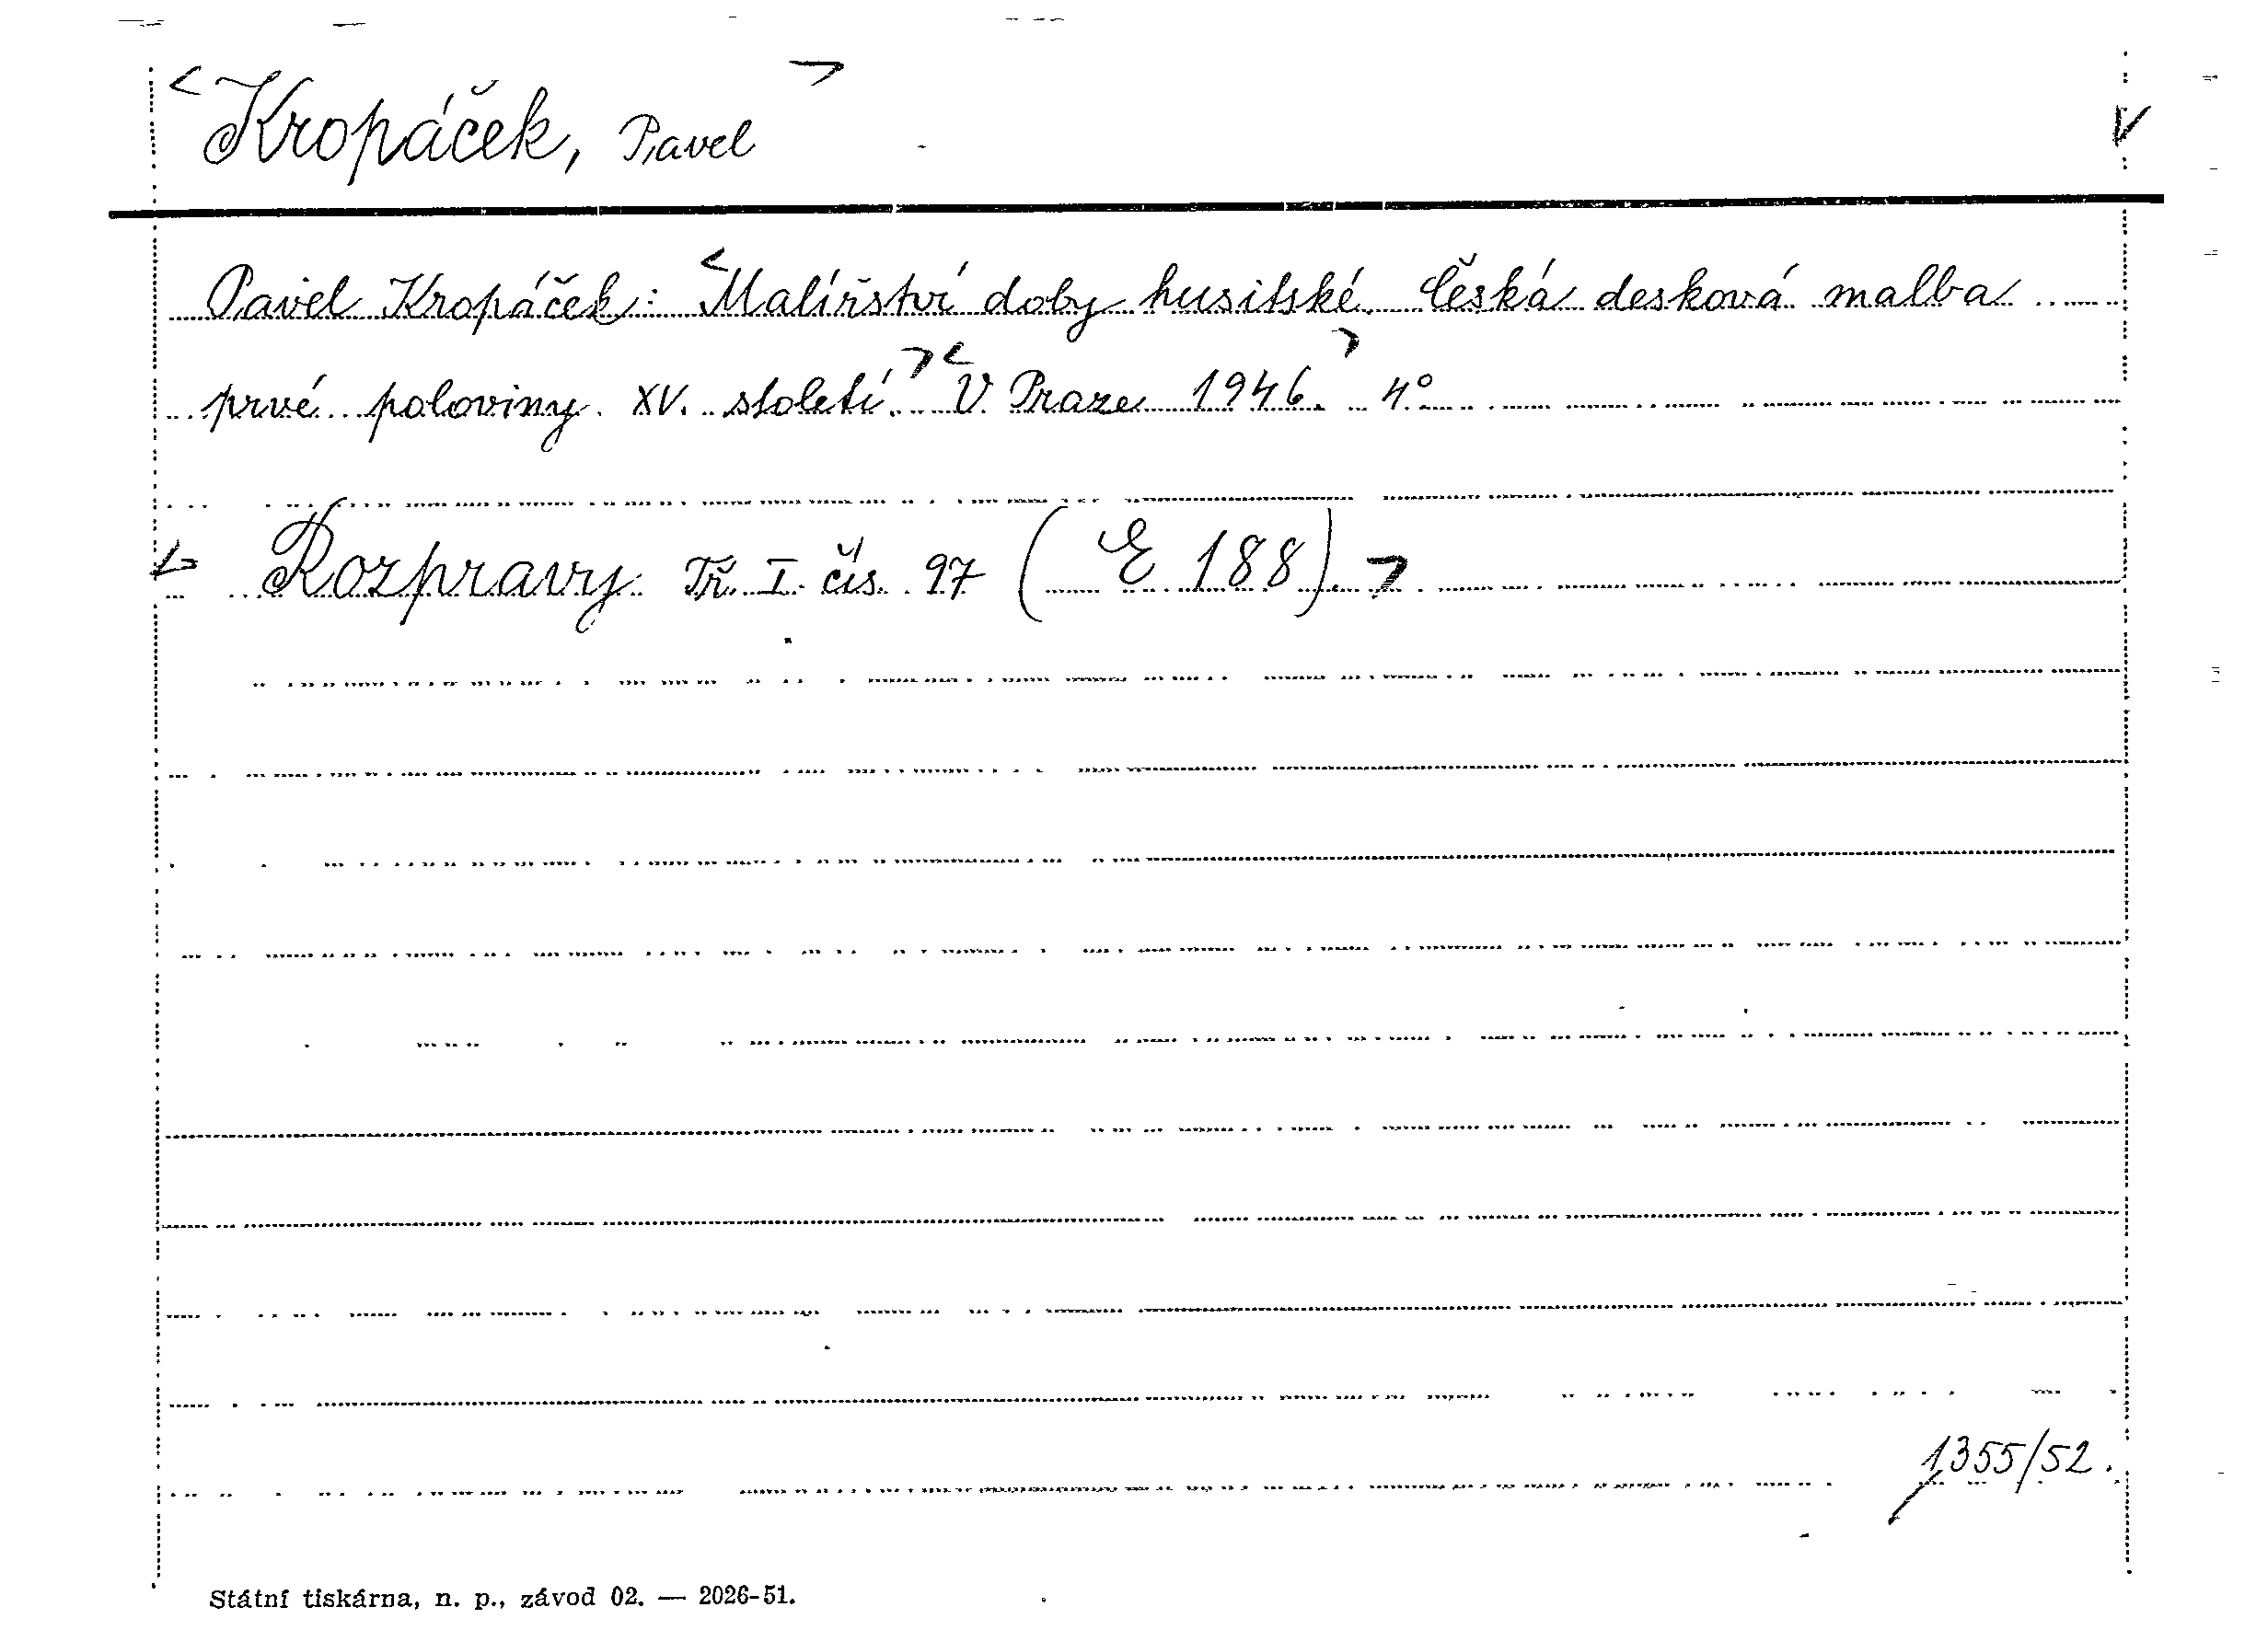 < Kropáček, Pavel >
V
Pavel Kropáček: <Malířství doby husitské. Česká desková malba
prvé poloviny XV. století.> <V Praze 1946.> 4°
Rozpravy Tř. I. čís. 97 (E 188). >
1355/52.
Státní tiskárna, n. p., závod 02. — 2026-51.